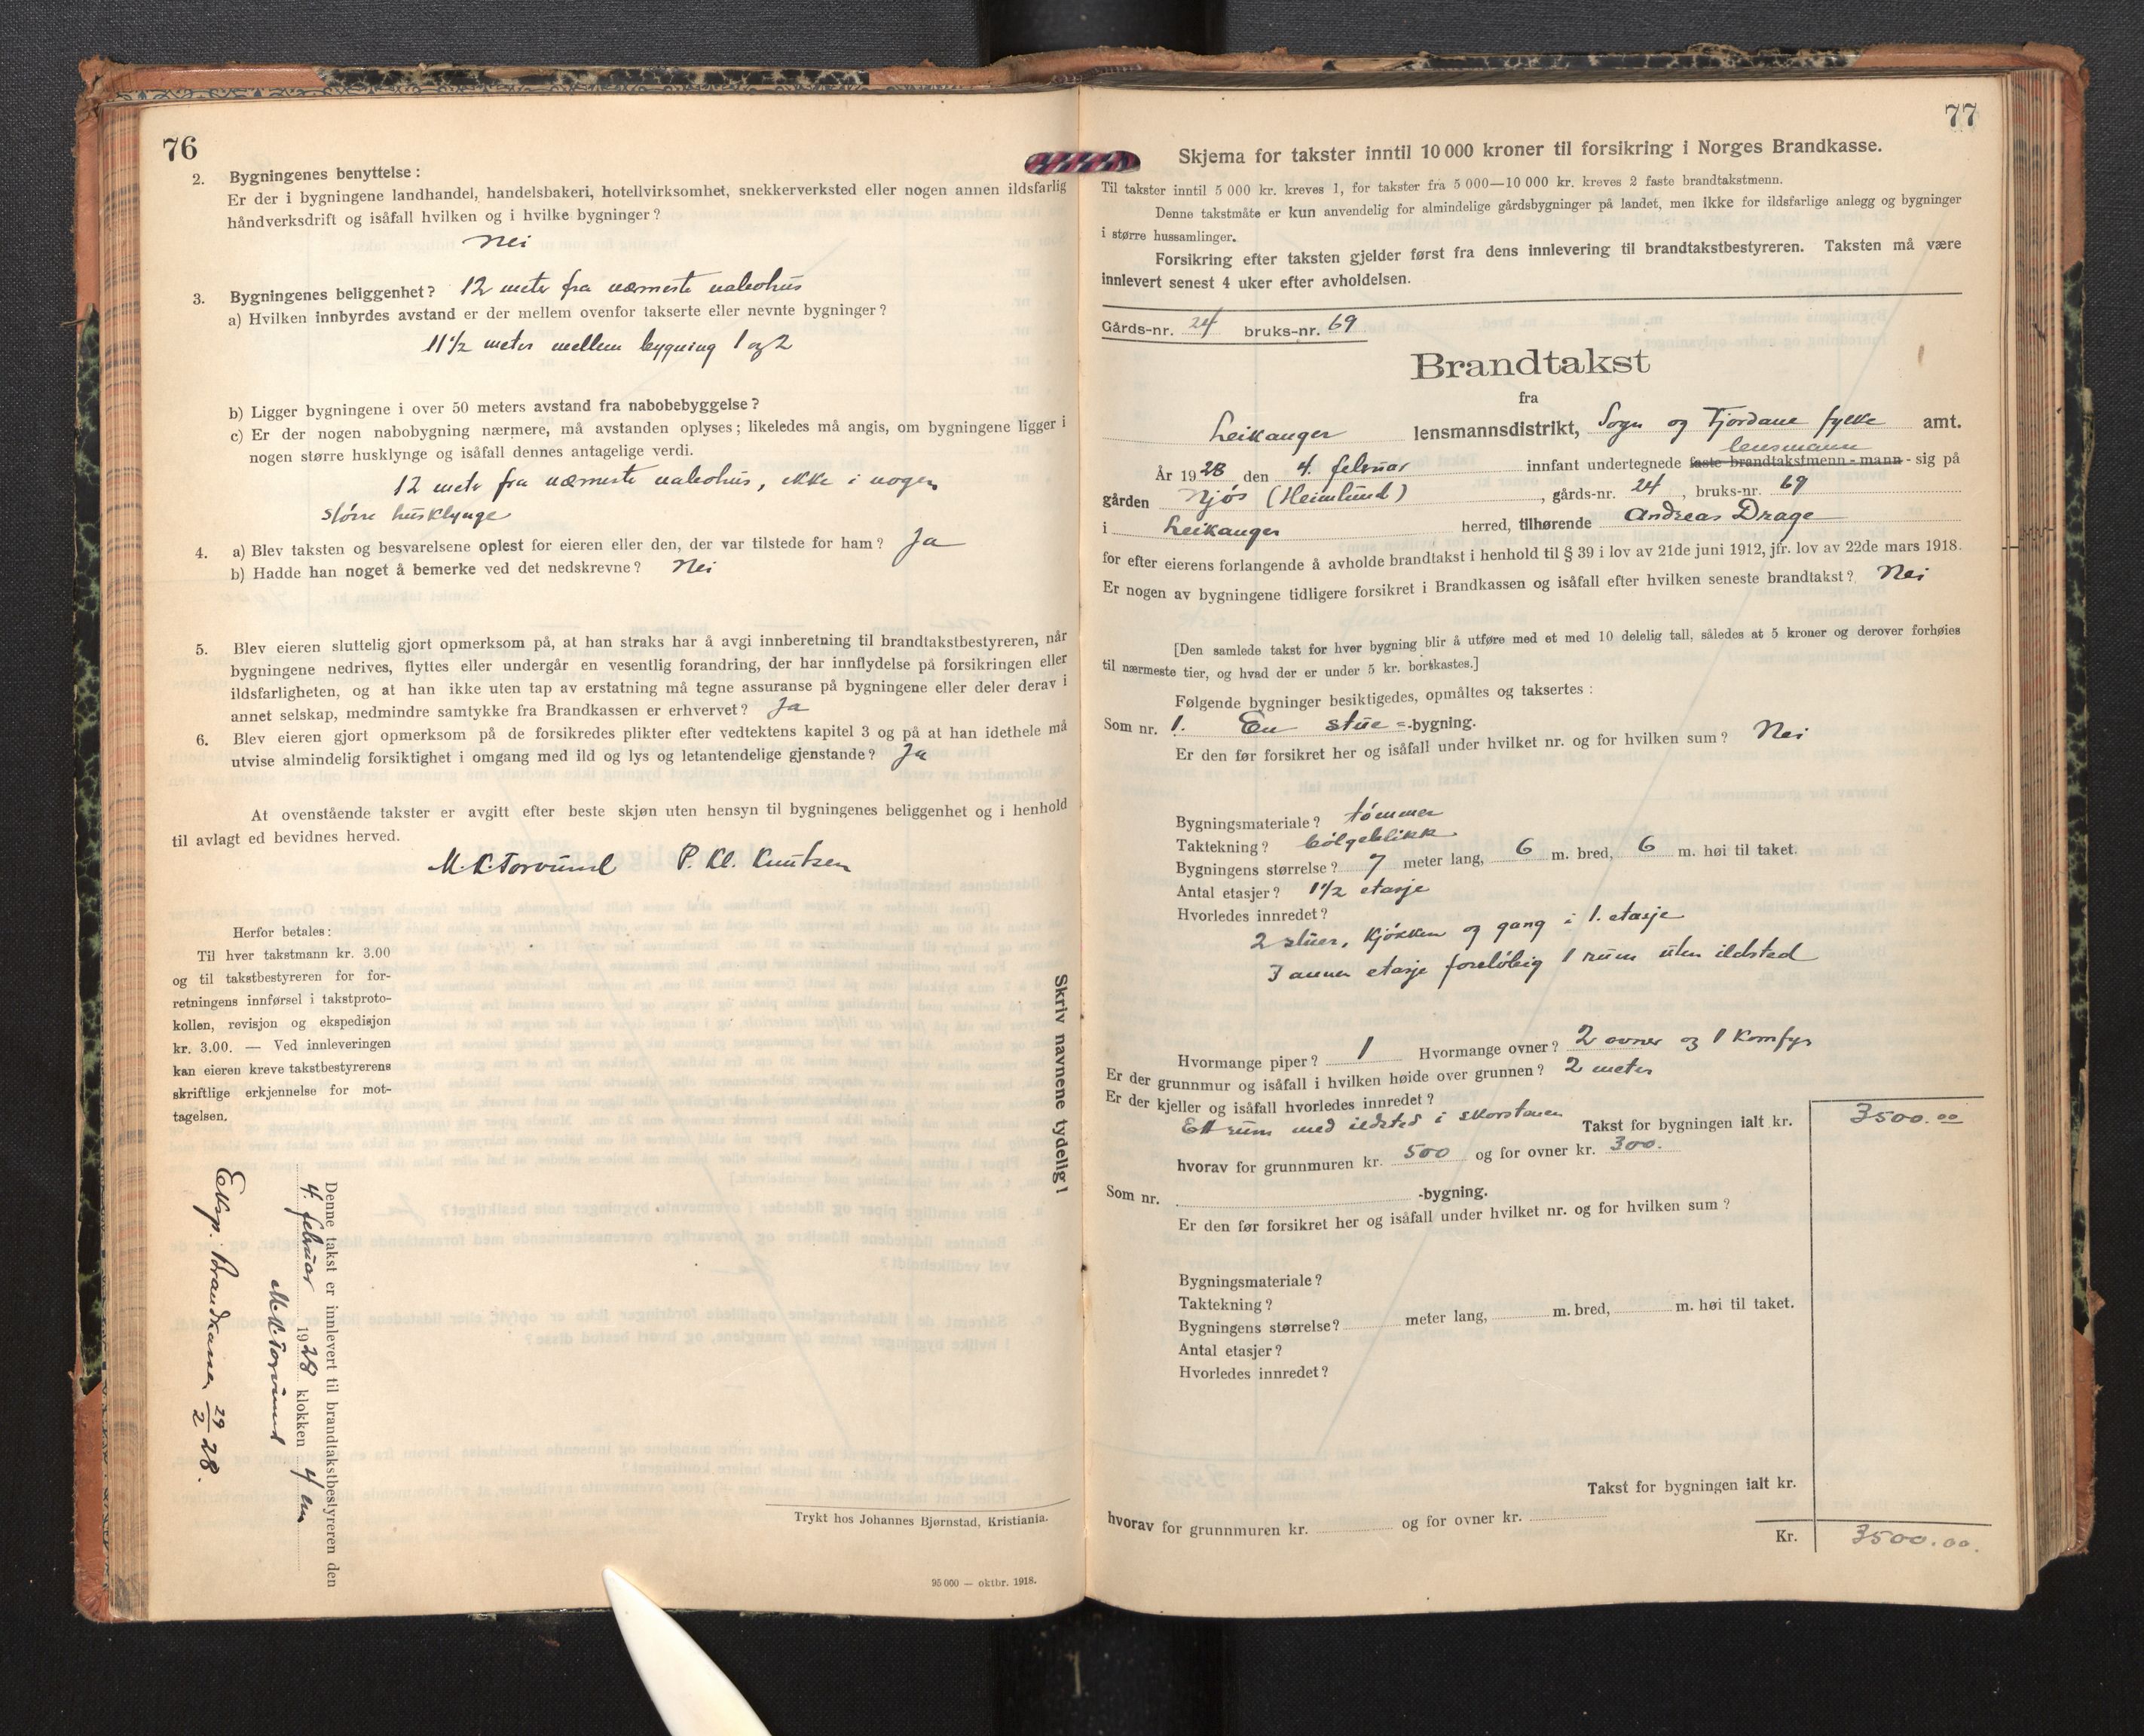 76
2. Bygningenes benyttelse:
Er der i bygningene landhandel, handelsbakeri, hotellvirksomhet, snekkerverksted eller nogen annen ildsfarlig
håndverksdrift og isåfall hvilken og i hvilke bygninger?
Nei
3. Bygningenes beliggenhet? 12 meter fra nærmeste nabohus
a) Hvilken innbyrdes avstand er der mellem ovenfor takserte eller nevnte bygninger?
11 1/2 meter mellem bygning 1 og 2
b) Ligger bygningene i over 50 meters avstand fra nabobebyggelse?
c) Er der nogen nabobygning nærmere, må avstanden oplyses; likeledes må angis, om bygningene ligger i
nogen større husklynge og isåfall dennes antagelige verdi.
12 meter fra nærmeste nabohus, ikke i nogen
større husklynge
4. a) Blev taksten og besvarelsene oplest for eieren eller den, der var tilstede for ham? Ja
b) Hadde han noget å bemerke ved det nedskrevne? Nei
5. Blev eieren sluttelig gjort opmerksom på, at han straks har å avgi innberetning til brandtakstbestyreren, når
bygningene nedrives, flyttes eller undergår en vesentlig forandring, der har innflydelse på forsikringen eller
ildsfarligheten, og at han ikke uten tap av erstatning må tegne assuranse på bygningene eller deler derav i
annet selskap, medmindre samtykke fra Brandkassen er erhvervet? Ja
6. Blev eieren gjort opmerksom på de forsikredes plikter efter vedtektenes kapitel 3 og på at han idethele må
utvise almindelig forsiktighet i omgang med ild og lys og letantendelige gjenstande? Ja
At ovenstående takster er avgitt efter beste skjøn uten hensyn til bygningenes beliggenhet og i henhold
til avlagt ed bevidnes herved.
M K Torvund P. Kl. Knutsen
Herfor betales:
Til hver takstmann kr. 3.00
og til takstbestyreren for for-
retningens innførsel i takstproto-
kollen, revisjon og ekspedisjon
kr. 3.00. — Ved innleveringen
kan eieren kreve takstbestyrerens
skriftlige erkjennelse for mot-
tagelsen.
Skriv navnene tydelig!
Denne takst er innlevert til brandtakstbestyreren den
4. februar 1928 klokken 4 em
M K Torvund
Eksp. Brandkassen 29/2 28.
Trykt hos Johannes Bjørnstad, Kristiania.
95 000 — oktbr. 1918.
77
Skjema for takster inntil 10 000 kroner til forsikring i Norges Brandkasse.
Til takster inntil 5 000 kr. kreves 1, for takster fra 5 000—10 000 kr. kreves 2 faste brandtakstmenn.
Denne takstmåte er kun anvendelig for almindelige gårdsbygninger på landet, men ikke for ildsfarlige anlegg og bygninger
i større hussamlinger.
Forsikring efter taksten gjelder først fra dens innlevering til brandtakstbestyreren. Taksten må være
innlevert senest 4 uker efter avholdelsen.
Gårds-nr. 24 bruks-nr. 69
Brandtakst
fra
Leikanger lensmannsdistrikt, Sogn og Fjordane fylke amt.
lensmann
År 1928 den 4. februar innfant undertegnede faste brandtakstmenn - mann - sig på
gården Njøs (Heimlund), gårds-nr. 24, bruks-nr. 69
i Leikanger herred, tilhørende Andreas Drage
for efter eierens forlangende å avholde brandtakst i henhold til § 39 i lov av 21de juni 1912, jfr. lov av 22de mars 1918.
Er nogen av bygningene tidligere forsikret i Brandkassen og isåfall efter hvilken seneste brandtakst? Nei
[Den samlede takst for hver bygning blir å utføre med et med 10 delelig tall, således at 5 kroner og derover forhøies
til nærmeste tier, og hvad der er under 5 kr. bortkastes.]
Følgende bygninger besiktigedes, opmåltes og taksertes:
Som nr. 1. En stue =-bygning.
Er den før forsikret her og isåfall under hvilket nr. og for hvilken sum? Nei
Bygningsmateriale? tømmer
Taktekning? bølgeblikk
Bygningens størrelse? 7 meter lang, 6 m. bred, 6 m. høi til taket.
Antal etasjer? 1 1/2 etasje
Hvorledes innredet?
2 stuer, kjøkken og gang i 1. etasje
I annen etasje foreløbig 1 rum uten ildsted
Hvormange piper? 1 Hvormange ovner? 2 ovner og 1 komfyr
Er der grunnmur og isåfall i hvilken høide over grunnen? 2 meter
Er der kjeller og isåfall hvorledes innredet?
Ett rum med ildsted i skorstenen Takst for bygningen ialt kr. 3500.00
hvorav for grunnmuren kr. 500 og for ovner kr. 300.
Som nr. -bygning.
Er den før forsikret her og isåfall under hvilket nr. og for hvilken sum?
Bygningsmateriale?
Taktekning?
Bygningens størrelse? meter lang, m. bred, m. høi til taket.
Antal etasjer?
Hvorledes innredet?
Takst for bygningen ialt kr.
hvorav for grunnmuren kr. og for ovner kr.
Kr. 3500.00.